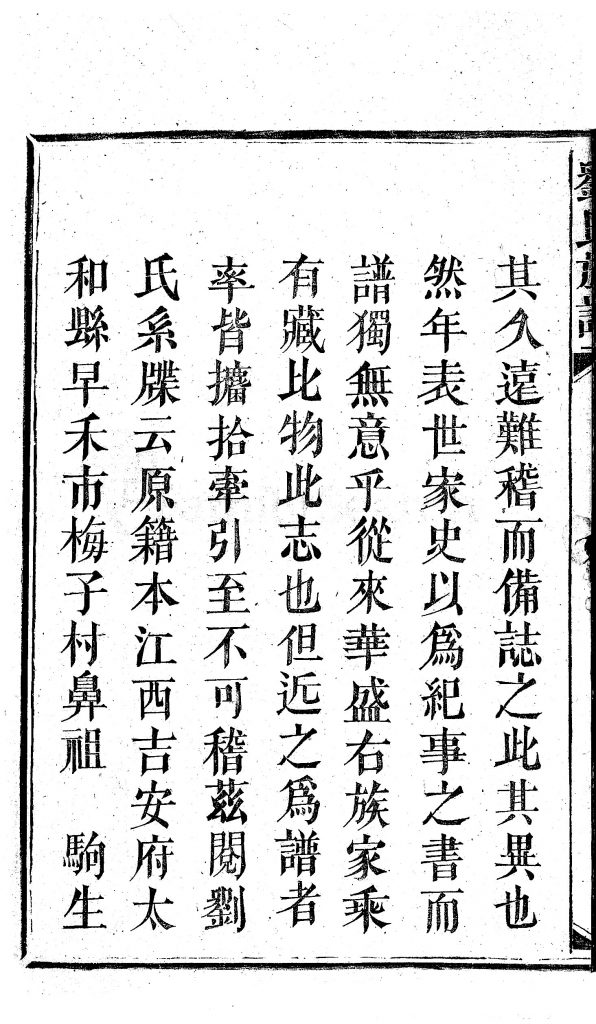 其久遠難稽而備誌之此其異也
然年表世家史以爲紀事之書而
譜獨無意乎從來華盛右族家乘
有藏比物此志也但近之爲譜者
率皆攟拾牽引至不可稽茲閱劉
氏系牒云原籍本江西吉安府太
和縣早禾市梅子村鼻祖　駒生